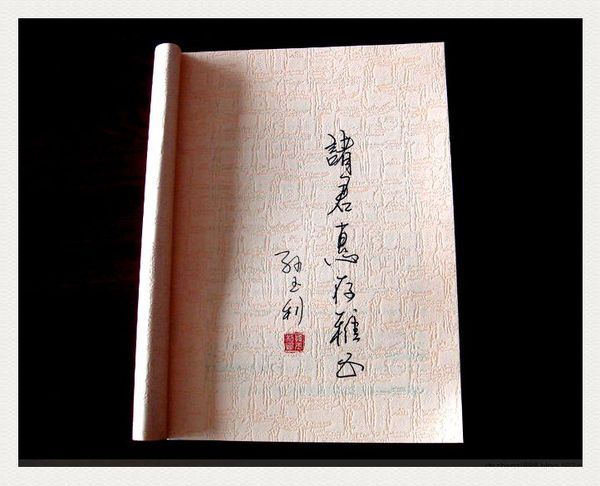 諸君惠存雅正
孙玉利